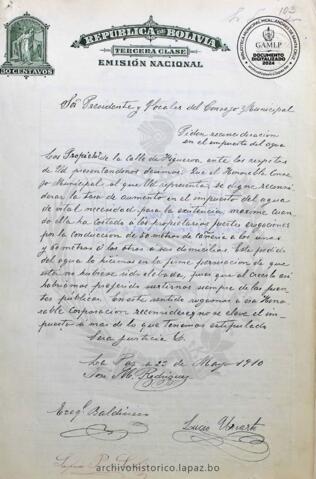 103
REPUBLICA DE BOLIVIA
TERCERA CLASE
EMISIÓN NACIONAL
50 CENTAVOS
GAMLP
DOCUMENTO
DIGITALIZADO
2024
Sor Presidente y Vocales del Concejo Municipal
Piden reconsideracion
en el impuesto del agua
Los Propietos de la Calle de Figueroa, ante los respetos
de Ud presentandonos decimos: Que el Honorable Conce
jo Municipal al que Ud representa, se digne reconsi
derar la tasa de aumento en el impuesto del agua
de vital necesidad para la existencia, maxime cuan
do ella ha costado a los propietarios fuertes erogaciones
por la conduccion de 50 metros de cañeria a los unos
y 60 metros a los otros a sus domicilios. Este pedido
del agua lo hicimos en la firme persuacion de que
esta no hubiese sido elevada, pues que al creerlo asi
habriamos preferido surtirnos siempre de las fuen
tes publicas. En este sentido rogamos a esa Hono
rable Corporacion reconsidere y no se eleve el im
puesto a mas de lo que tenemos estipulado
Sera justicia &.
La Paz a 23 de Mayo 1910
Rodriguez
Baldivieso
Lucio Uriarte
archivohistorico.lapaz.bo